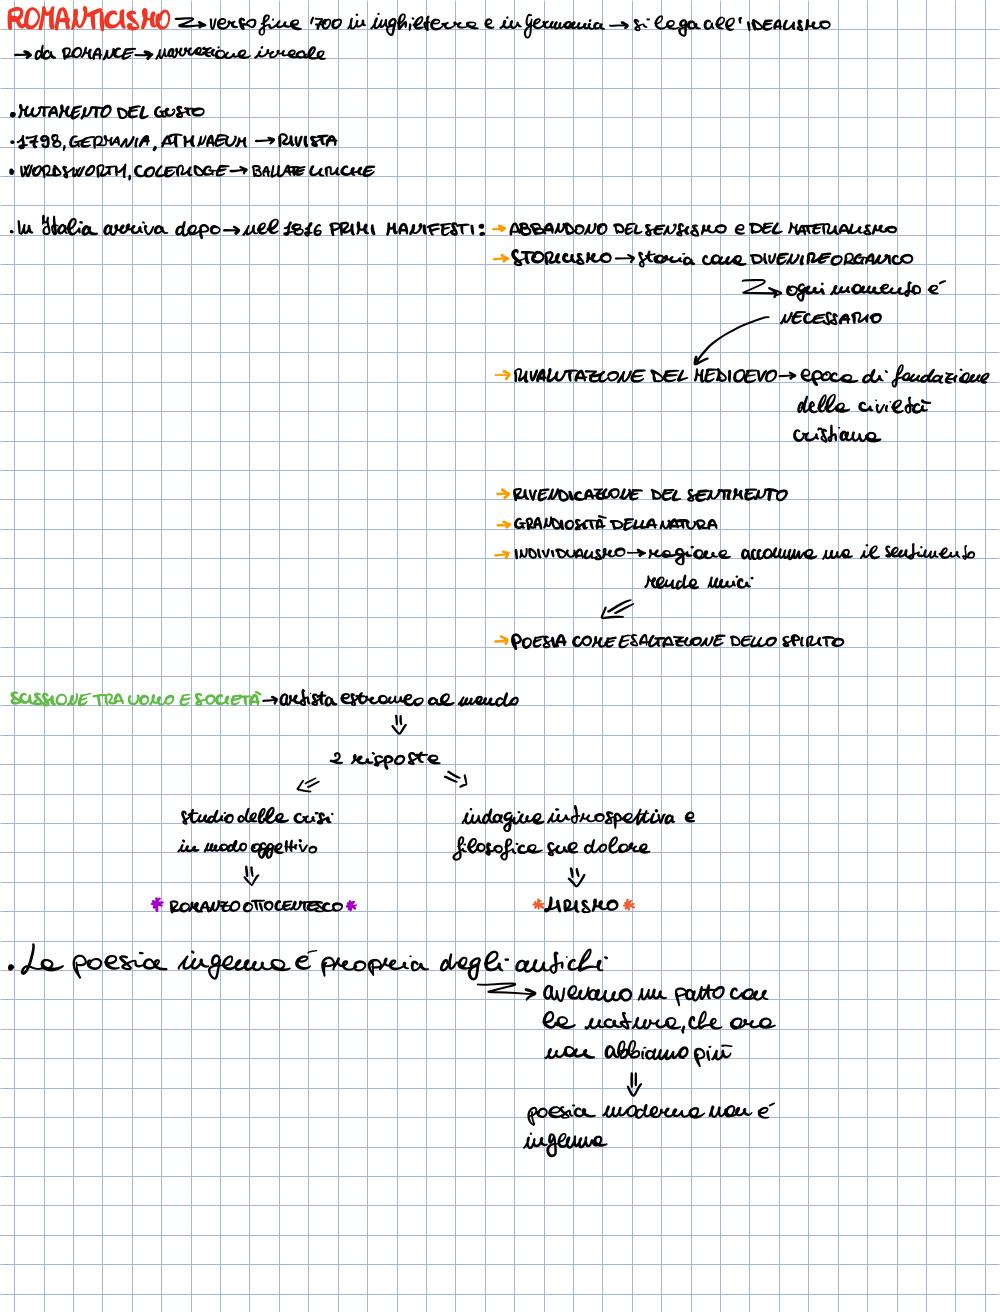 ROMANTICISMO → verso fine '700 in inghilterra e in germania → si lega all' IDEALISMO
→ da ROMANCE → narrazione irreale
• MUTAMENTO DEL GUSTO
• 1798, GERMANIA, ATHNAEUM → RIVISTA
• WORDSWORTH, COLERIDGE → BALLATE LIRICHE
• In Italia arriva dopo → nel 1816 PRIMI MANIFESTI: → ABBANDONO DEL SENSISMO e DEL MATERIALISMO
→ STORICISMO → storia come DIVENIRE ORGANICO
→ ogni momento é
NECESSARIO
→ RIVALUTAZIONE DEL MEDIOEVO → epoca di fondazione
della civiltà
cristiana
→ RIVENDICAZIONE DEL SENTIMENTO
→ GRANDIOSITÀ DELLA NATURA
→ INDIVIDUALISMO → ragione accomuna ma il sentimento
rende unici
→ POESIA COME ESALTAZIONE DELLO SPIRITO
SCISSIONE TRA UOMO E SOCIETÀ → artista estraneo al mondo
⇓
2 risposte
studio della crisi
in modo oggettivo
⇓
* ROMANZO OTTOCENTESCO *
indagine introspettiva e
filosofica sul dolore
⇓
* LIRISMO *
• La poesia ingenua é propria degli antichi
→ avevano un patto con
la natura, che ora
non abbiamo più
⇓
poesia moderna non é
ingenua